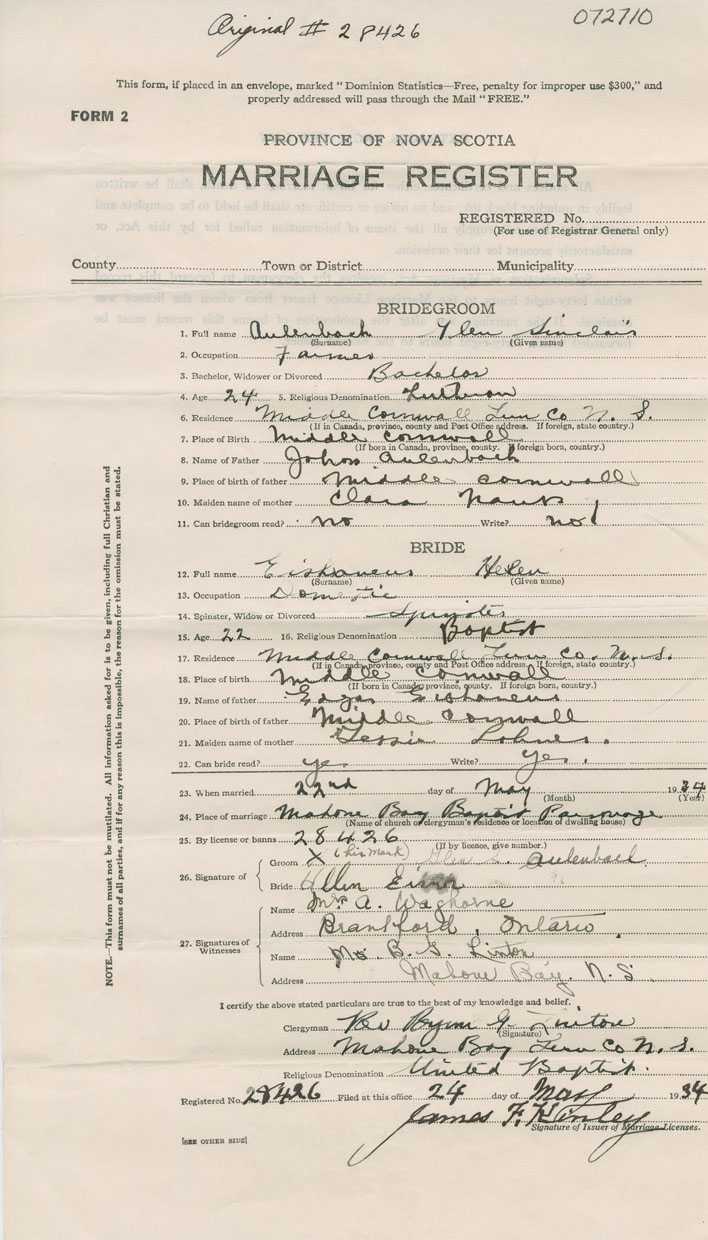 Original # 28426
072710
This form, if placed in an envelope, marked "Dominion Statistics—Free, penalty for improper use $300," and
properly addressed will pass through the Mail "FREE."
FORM 2
PROVINCE OF NOVA SCOTIA
MARRIAGE REGISTER
REGISTERED No.
(For use of Registrar General only)
County Town or District Municipality
BRIDEGROOM
1. Full name Aulenback Glen Sinclair
(Surname) (Given name)
2. Occupation Farmer
3. Bachelor, Widower or Divorced Bachelor
4. Age 24 5. Religious Denomination Lutheran
6. Residence Middle Cornwall Lun Co N. S.
(If in Canada, province, county and Post Office address. If foreign, state country.)
7. Place of Birth Middle Cornwall
(If born in Canada, province, county. If foreign born, country.)
8. Name of Father Johon Aulenback
9. Place of birth of father Middle Cornwall
10. Maiden name of mother Clara
11. Can bridegroom read? no Write? no
BRIDE
12. Full name Helen
(Surname) (Given name)
13. Occupation Domestic
14. Spinster, Widow or Divorced Spinster
15. Age 22 16. Religious Denomination Baptist
17. Residence Middle Cornwall Lun Co. N. S.
(If in Canada, province, county and Post Office address. If foreign, state country.)
18. Place of birth Middle Cornwall
(If born in Canada, province, county. If foreign born, country.)
19. Name of father Edgar
20. Place of birth of father Middle Cornwall
21. Maiden name of mother Lohnes.
22. Can bride read? yes Write? yes.
23. When married 22nd day of May 1934
(Month) (Year)
24. Place of marriage Mahone Bay Baptist Parsonage
(Name of church or clergyman's residence or location of dwelling house)
25. By license or banns 28426
(If by licence, give number.)
26. Signature of
Groom X (his mark) Glen S. Aulenback
Bride Ellen
27. Signatures of Witnesses
Name Mrs A. Waghorne
Address Brantford, Ontario
Name Mrs. B. G. Linton
Address Mahone Bay. N. S
I certify the above stated particulars are true to the best of my knowledge and belief.
Clergyman Rev G. Linton
(Signature)
Address Mahone Bay Lun Co N. S.
Religious Denomination United Baptist.
Registered No. 28426 Filed at this office 24 day of May 1934
James F. Kinley
Signature of Issuer of Marriage Licenses.
[SEE OTHER SIDE]
NOTE.—This form must not be mutilated. All information asked for is to be given, including full Christian and
surnames of all parties, and if for any reason this is impossible, the reason for the omission must be stated.